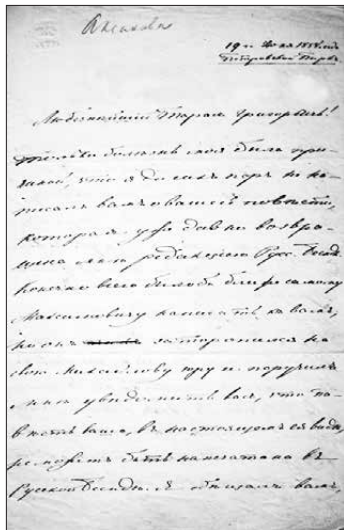 Аксакова
19го Июня 1858 года
Петровский Паркъ
Любезнѣйшій Тарасъ Григорьевичь!
Только болѣзнь моя была при-
чиной, что я до сихъ поръ не на-
писалъ вамъ о вашей повѣсти,
которая уже давно возвра-
щена мнѣ редакціею Русс. Бесѣды.
Конечно всего было бы ближе самому
Максимовичу написать къ вамъ,
но онъ заторопился на
свою Михайлову гору и поручилъ
мнѣ увѣдомить васъ, что по-
вѣсть ваша, въ настоящемъ ея видѣ,
не можетъ быть напечатана въ
Русской Бесѣдѣ. Я обѣщалъ вамъ,